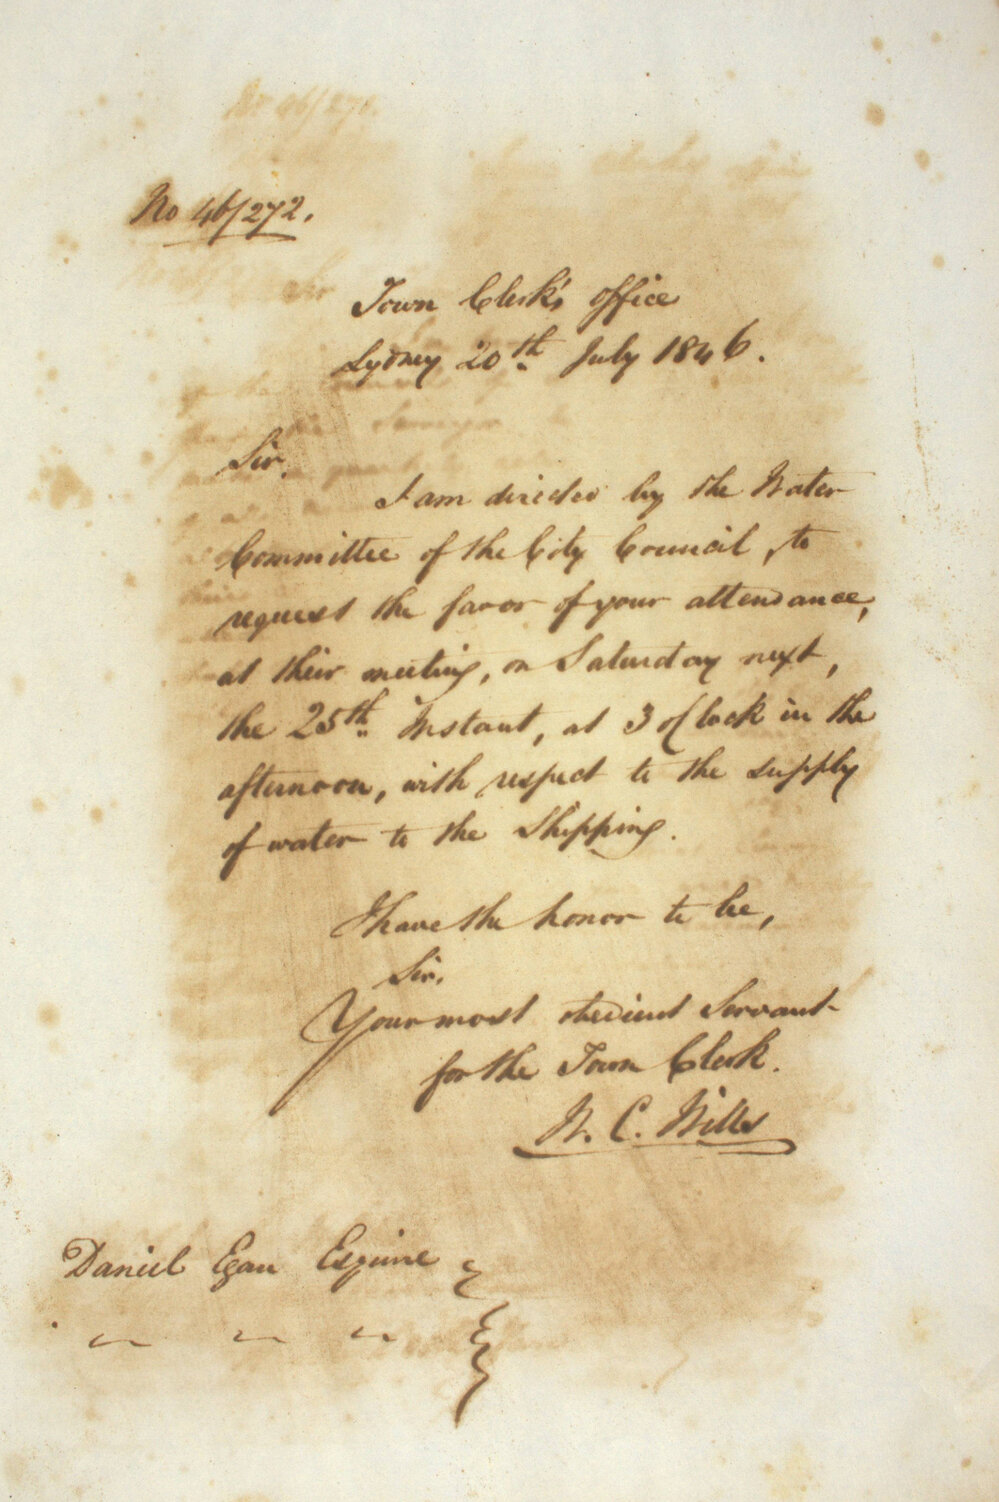 No 46/272.
Town Clerk's office
Sydney 20th July 1846.
Sir,
I am directed by the Water
Committee of the City Council, to
request the favor of your attendance,
at their meeting, on Saturday next,
the 25th Instant, at 3 o'Clock in the
afternoon, with respect to the supply
of water to the Shipping.
I have the honor to be,
Sir,
Your most obedient Servant
for the Town Clerk.
W. C. Wills
Daniel Egan Esquire